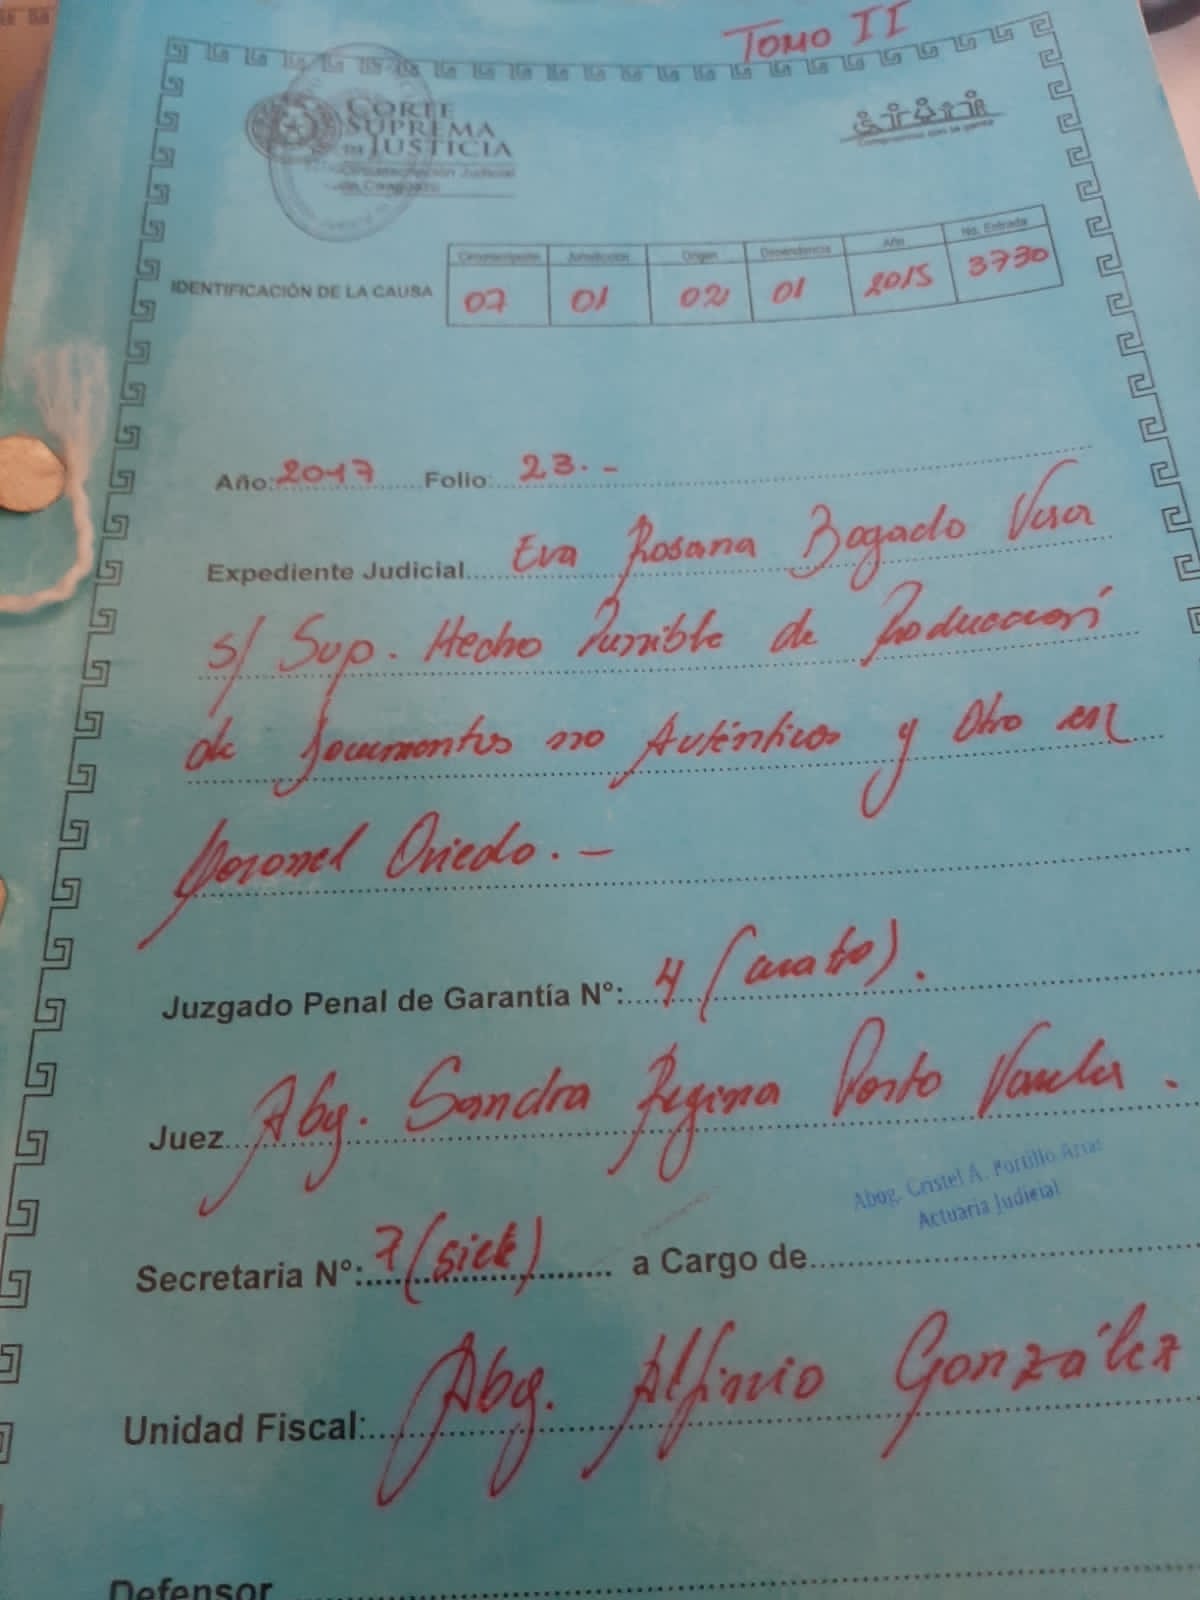 Tomo II
CORTE
SUPREMA
DE JUSTICIA
Circunscripción Judicial
de Caaguazú
Compromiso con la gente
Circunscripción Jurisdicción Origen Dependencia Año No. Entrada
IDENTIFICACIÓN DE LA CAUSA 07 01 02 01 2015 3730
Año: 2017 Folio: 23.-
Expediente Judicial Eva Rosana Bogado Vera
s/ Sup. Hecho Punible de Producción
de Documentos no Auténticos y Otro en
Coronel Oviedo.-
Juzgado Penal de Garantía N°: 4 (cuatro).
Juez Abg. Sandra Regina Porto
Abog. Cristel A. Portillo Arias
Actuaria Judicial
Secretaria N°: 7 (siete) a Cargo de
Unidad Fiscal: Abg. Alfirio González
Defensor